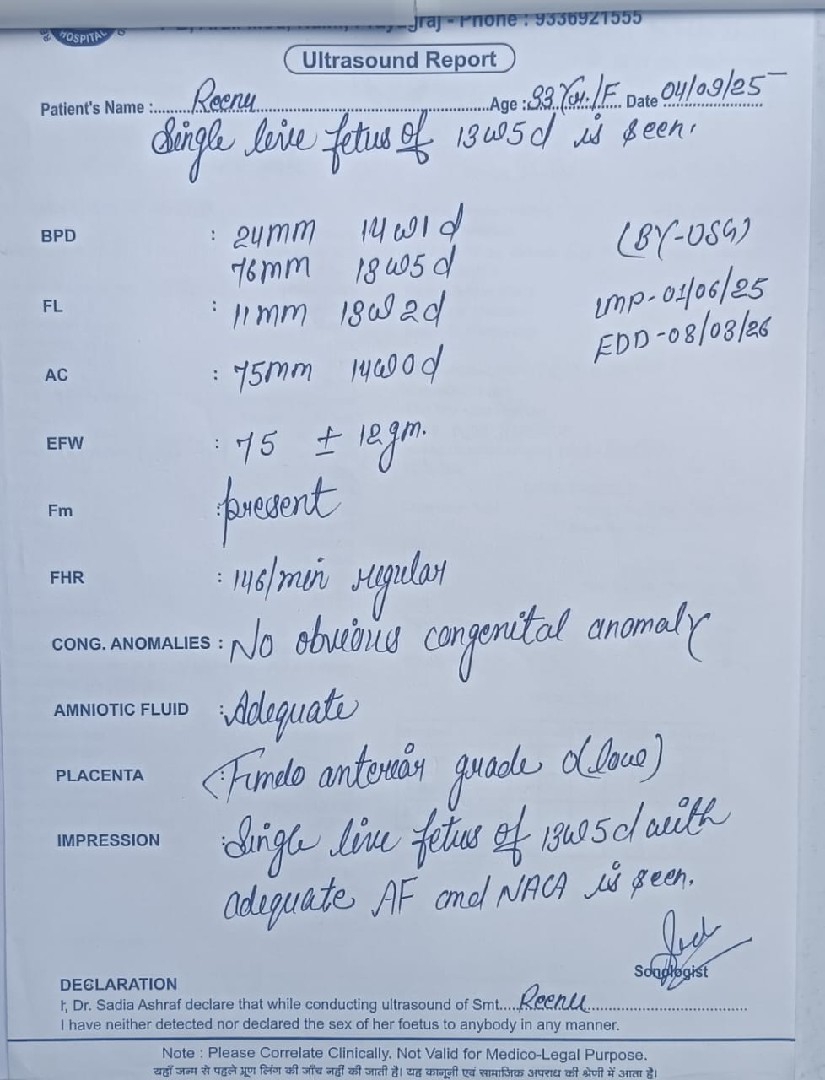 HOSPITAL
Phone : 9336921555
Ultrasound Report
Patient's Name : Reenu Age : 33 Yr./F Date 04/09/25
Single live fetus of 13w5d is seen.
BPD : 24mm 14w1d (BY-USG)
76mm 13w5d
FL : 11mm 13w2d LMP-01/06/25
EDD-08/03/26
AC : 75mm 14w0d
EFW : 75 ± 12gm.
Fm : present
FHR : 146/min regular
CONG. ANOMALIES : No obvious congenital anomaly
AMNIOTIC FLUID : Adequate
PLACENTA : Fundo anterior grade 0 (love)
IMPRESSION : Single live fetus of 13w5d with
adequate AF and NACA is seen.
Sonologist
DECLARATION
I, Dr. Sadia Ashraf declare that while conducting ultrasound of Smt. Reenu
I have neither detected nor declared the sex of her foetus to anybody in any manner.
Note : Please Correlate Clinically. Not Valid for Medico-Legal Purpose.
यहाँ जन्म से पहले भ्रूण लिंग की जाँच नहीं की जाती है। यह कानूनी एवं सामाजिक अपराध की श्रेणी में आता है।